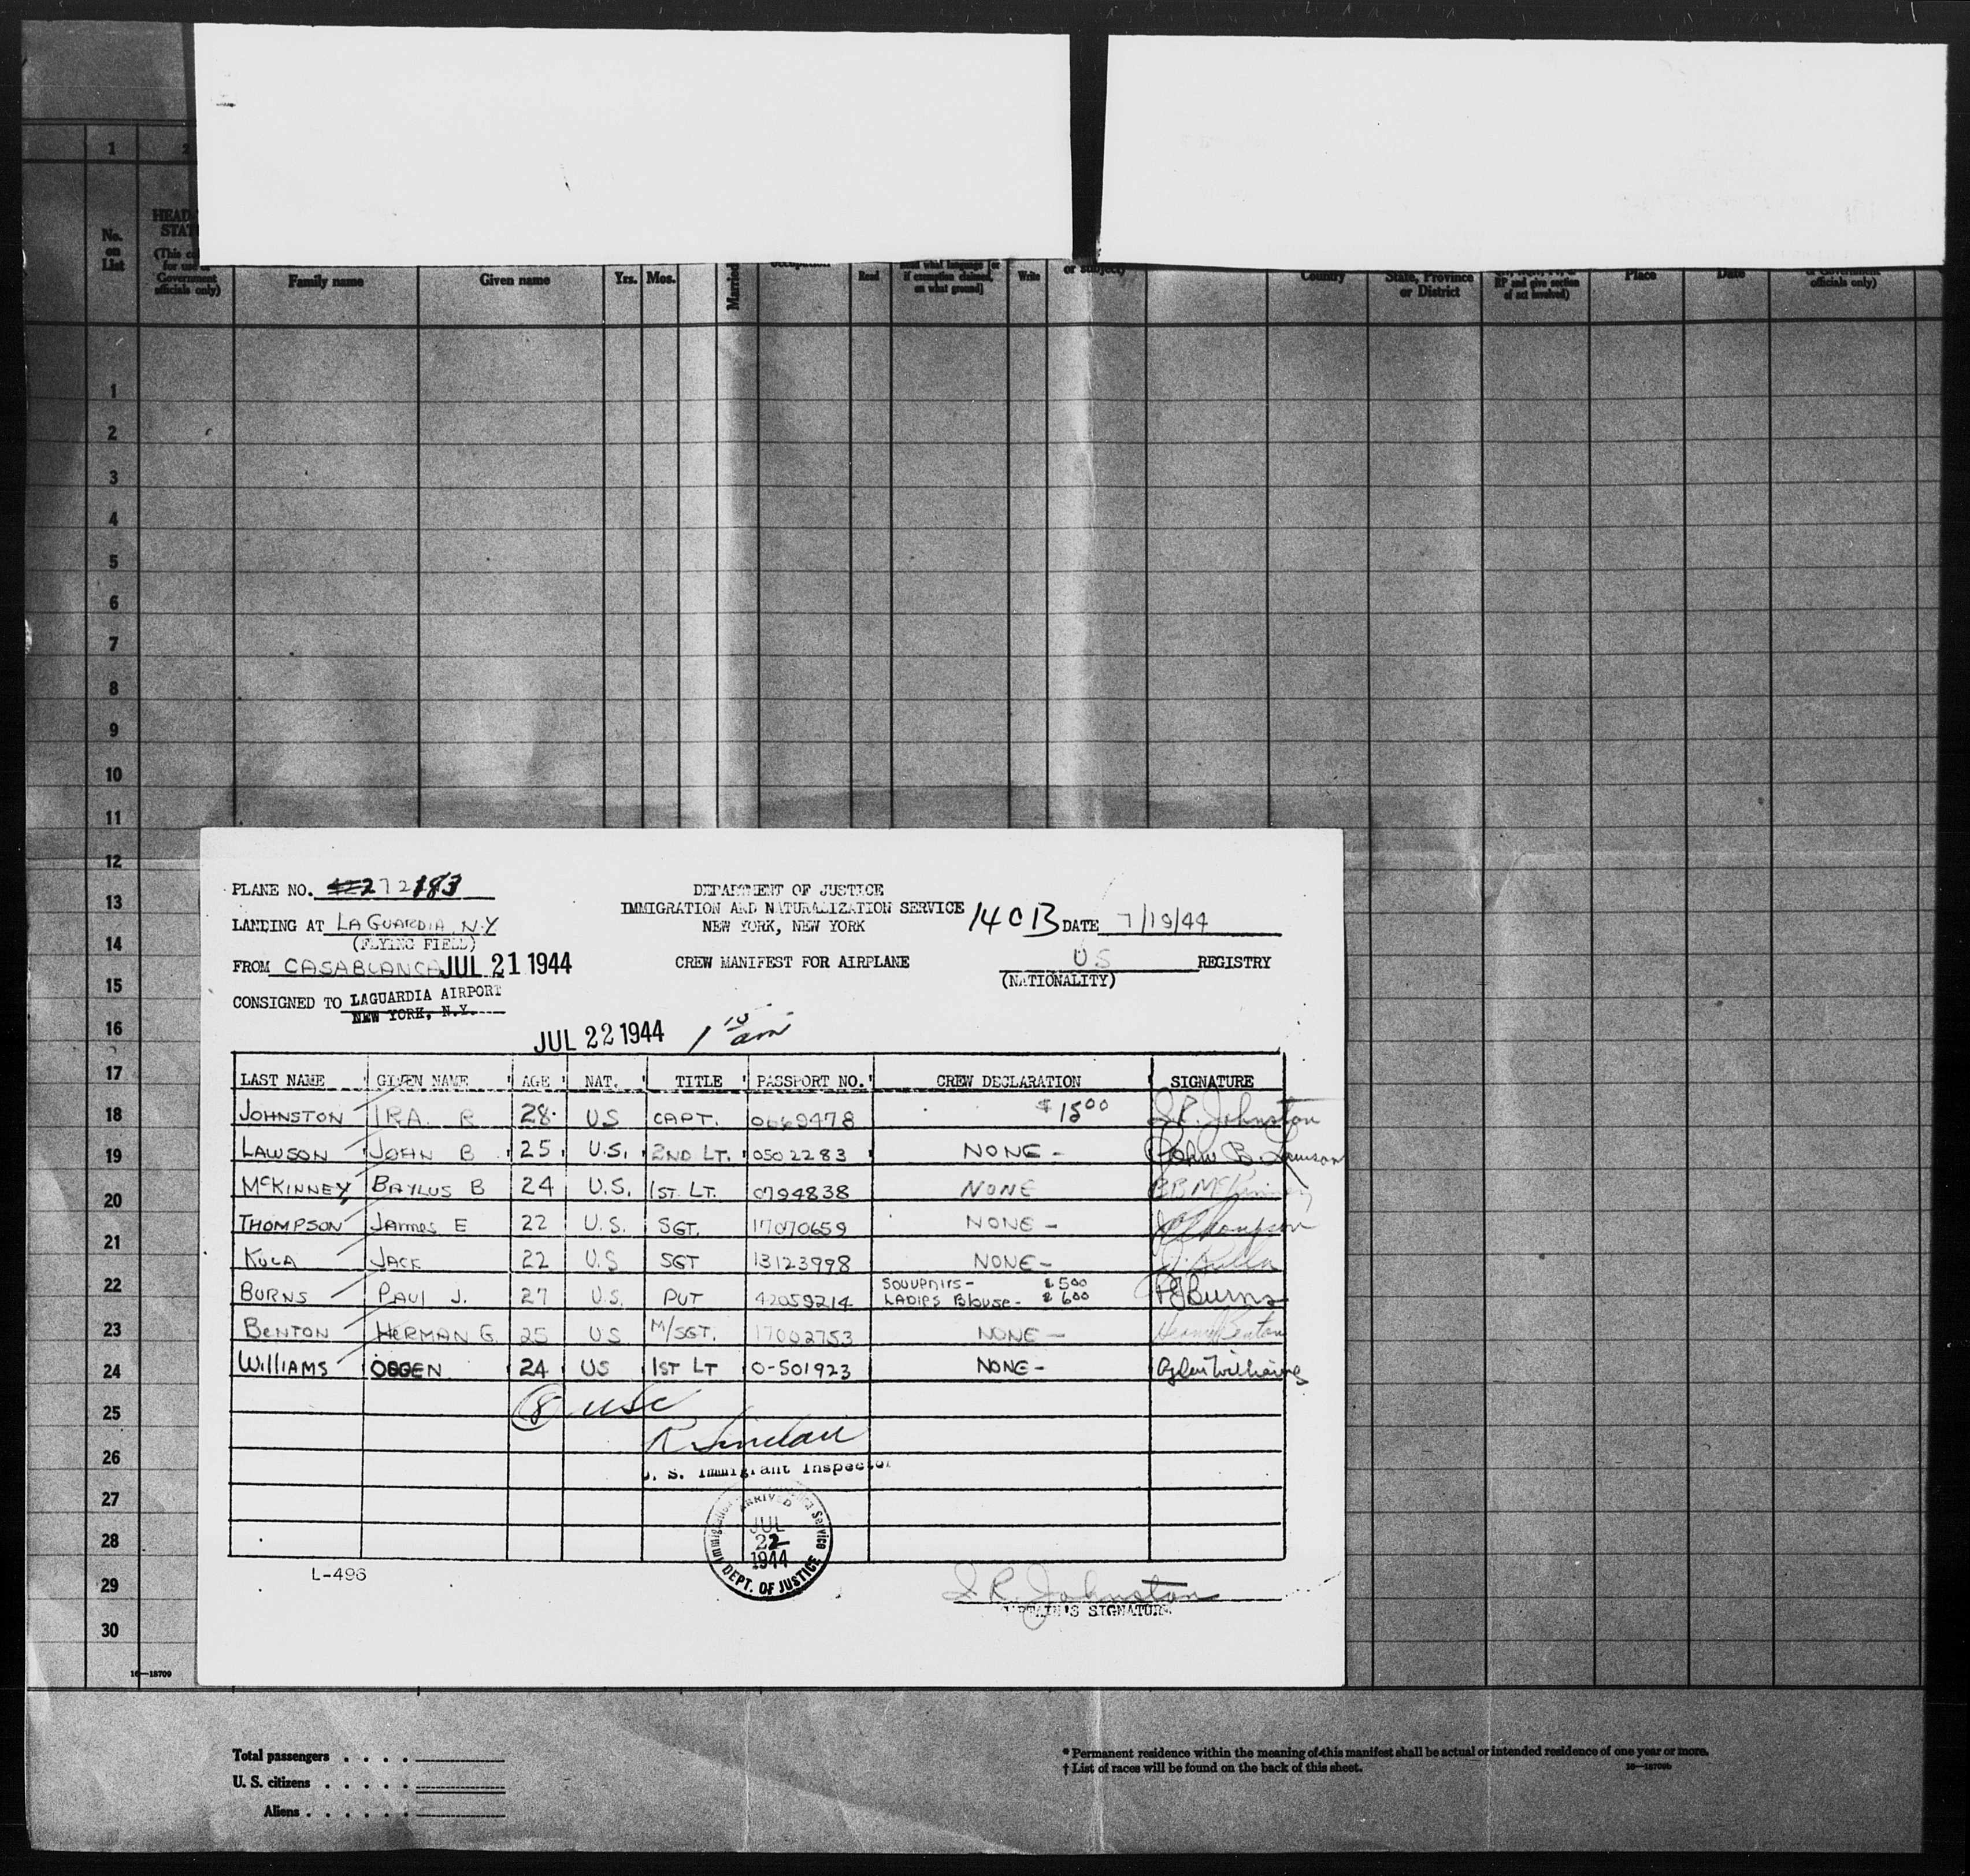 1 2
No. on List
HEAD-
STAT
(This co
for use
Government
officials only)
Family name Given name Yrs. Mos. Married Read
if exemption claimed,
on what ground]
Write or subject Country State, Province
or District
RP and give section
of act involved)
Place Date
officials only)
1
2
3
4
5
6
7
8
9
10
11
12
13
14
15
16
17
18
19
20
21
22
23
24
25
26
27
28
29
30
16—18709
PLANE NO. 272183
DEPARTMENT OF JUSTICE
IMMIGRATION AND NATURALIZATION SERVICE
NEW YORK, NEW YORK
140B DATE 7/19/44
LANDING AT LA GUARDIA N.Y
(FLYING FIELD)
FROM CASABLANCA JUL 21 1944
CREW MANIFEST FOR AIRPLANE
US REGISTRY
(NATIONALITY)
CONSIGNED TO LAGUARDIA AIRPORT
NEW YORK, N.Y.
JUL 22 1944 1 10 am
LAST NAME GIVEN NAME AGE NAT. TITLE PASSPORT NO. CREW DECLARATION SIGNATURE
JOHNSTON IRA R 28 US CAPT. 0669478 $15 00 I.R. Johnston
LAWSON JOHN B 25 U.S. 2ND LT. 0502283 NONE - John B. Lawson
McKINNEY BAYLUS B 24 U.S. 1ST LT. 0794838 NONE BB McKinney
THOMPSON James E 22 U.S. SGT. 17070659 NONE - JE Thompson
KULA JACK 22 U.S SGT 13123998 NONE - J. Kulla
BURNS PAUL J. 27 U.S. PVT 42059214 SOUVENIRS - $5 00
LADIES Blouse - $6 00 PJ Burns
BENTON HERMAN G. 25 US M/SGT. 17002753 NONE - Herman Benton
WILLIAMS OGDEN 24 US 1ST LT 0-501923 NONE - Ogden Williams
8 USC
R Sinclair
U. S. Immigrant Inspector
Immigration Service
ARRIVED
JUL
22
1944
DEPT. OF JUSTICE
L-496
I.R. Johnston
CAPTAIN'S SIGNATURE
Total passengers . . . .
U. S. citizens . . . . .
Aliens . . . . . .
* Permanent residence within the meaning of this manifest shall be actual or intended residence of one year or more.
† List of races will be found on the back of this sheet.
16—18709b